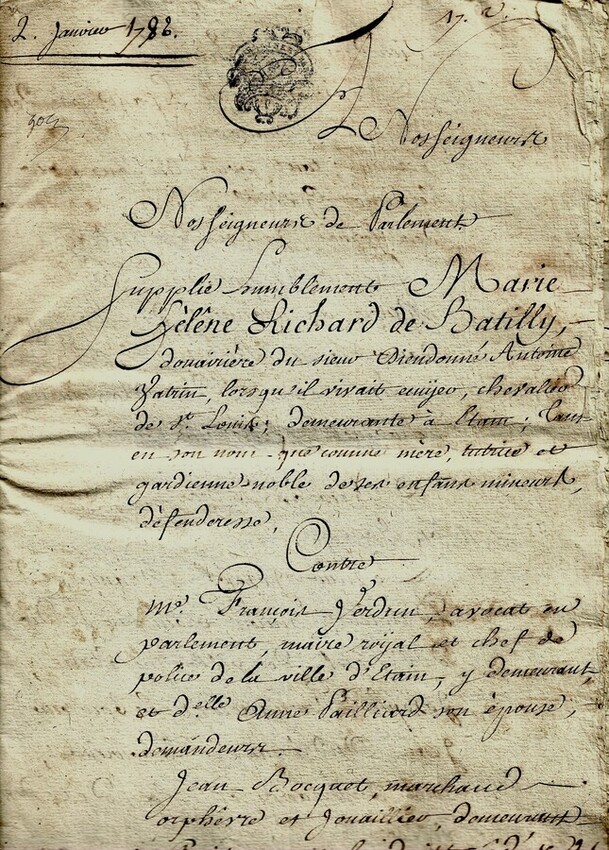 2. Janvier 1786.
17. 2.
Nosseigneurs
Nosseigneurs de Parlement
Supplie humblement Marie
Hélène Richard de Batilly,
douairière du sieur Dieudonné Antoine
Vatrin, lorsqu'il vivait ecuyer, chevalier
de St. Louis; demeurante à Etain; tant
en son nom que comme mère, tutrice et
gardienne-noble de ses enfans mineurs,
défenderesse,
Contre
Me. François Verdun, avocat en
parlement, maire royal et chef de
police de la ville d'Etain, y demeurant,
et d.elle Anne Pailliard son épouse,
demandeurs.
Jean Bocquet, marchand
orphêvre et Jouaillier, demeurant